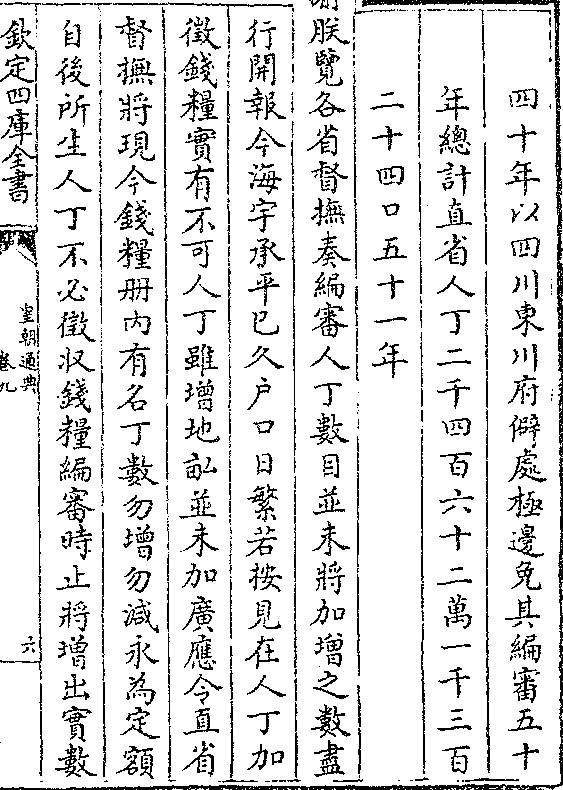 四十年以四川東川府僻處極邊免其編審五十
年總計直省人丁二千四百六十二萬一千三百
二十四口五十一年
朕覽各省督撫奏編審人丁數目並未將加增之數盡
行開報今海宇承平已久户口日繁若按見在人丁加
徵錢糧實有不可人丁雖增地畝並未加廣應令直省
督撫將現今錢糧册内有名丁數勿增勿減永為定額
自後所生人丁不必徵收錢糧編審時止將增出實數
欽定四庫全書
皇朝通典
卷九
六